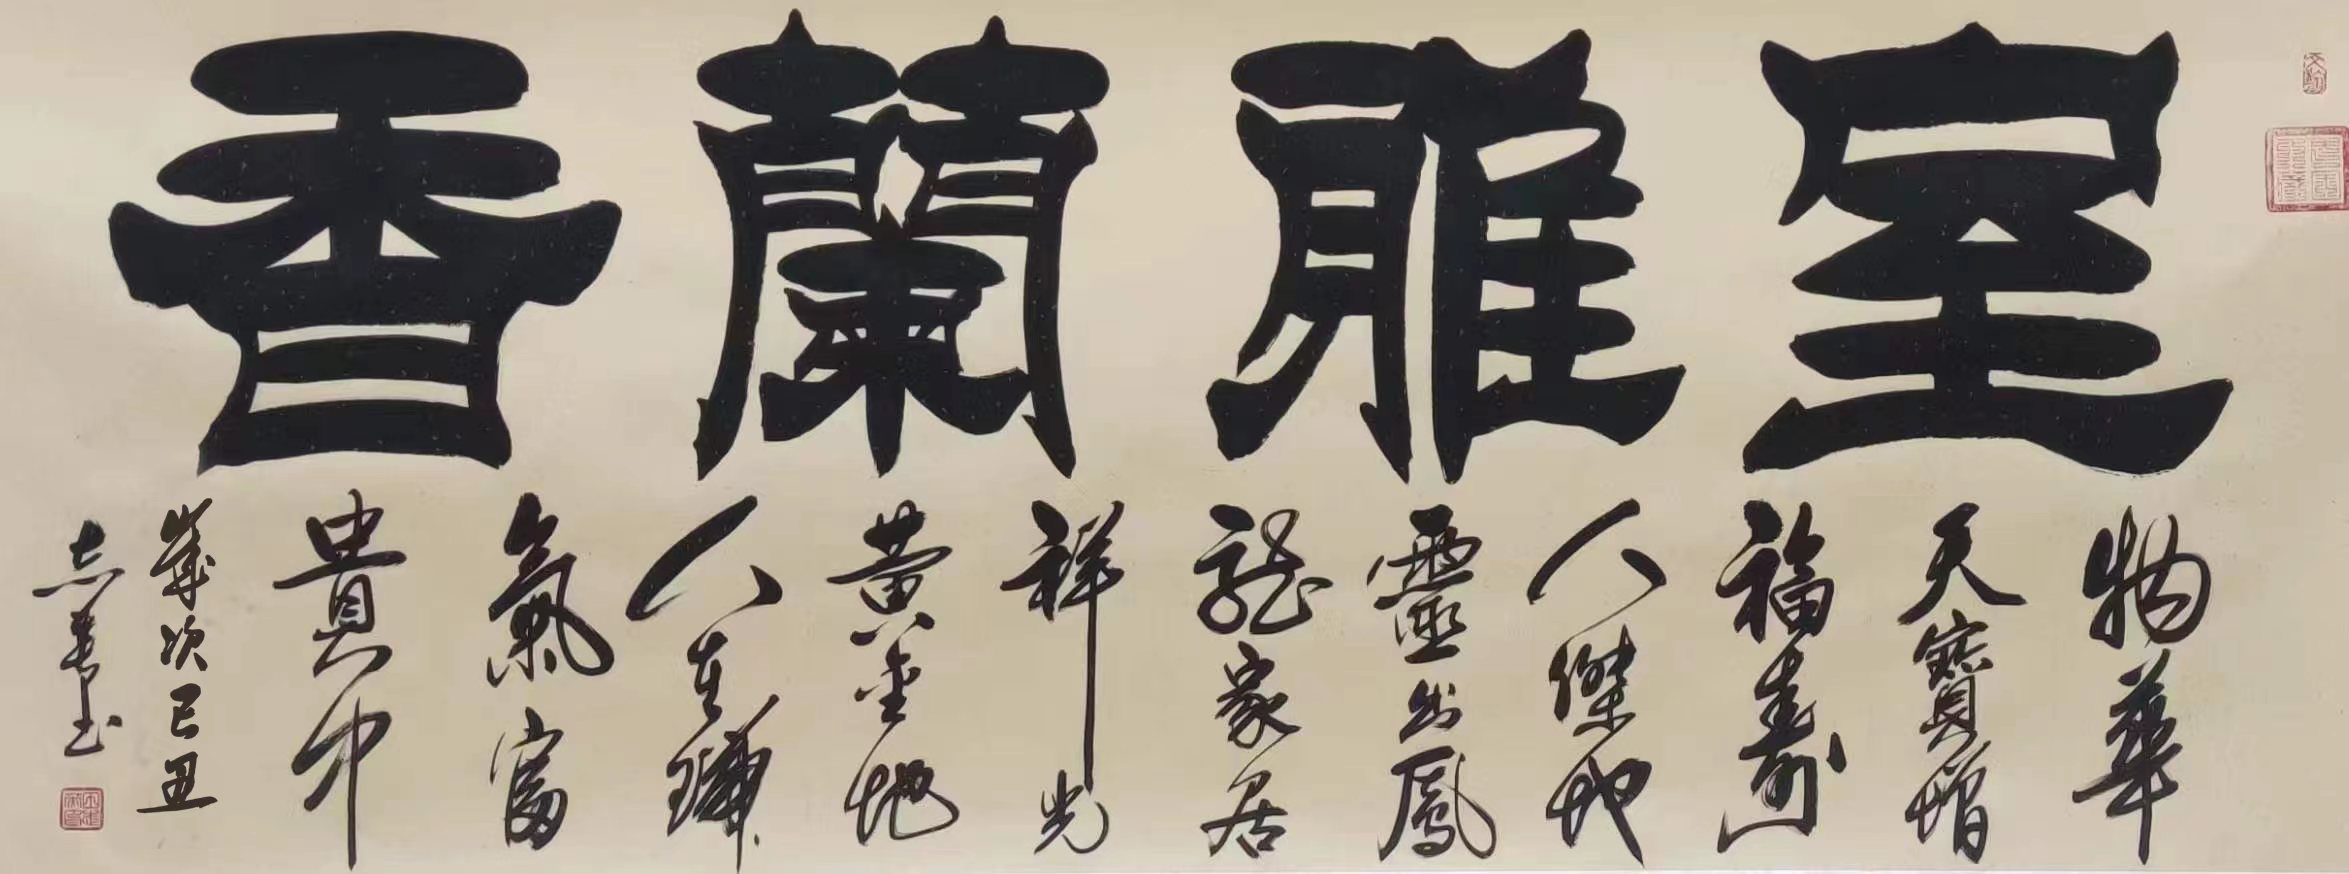 室雅蘭香
物華
天寶增
福壽
人傑地
靈出鳳
龍家居
祥光
黃金地
人在瑞
氣富
貴中
歲次己丑
志書